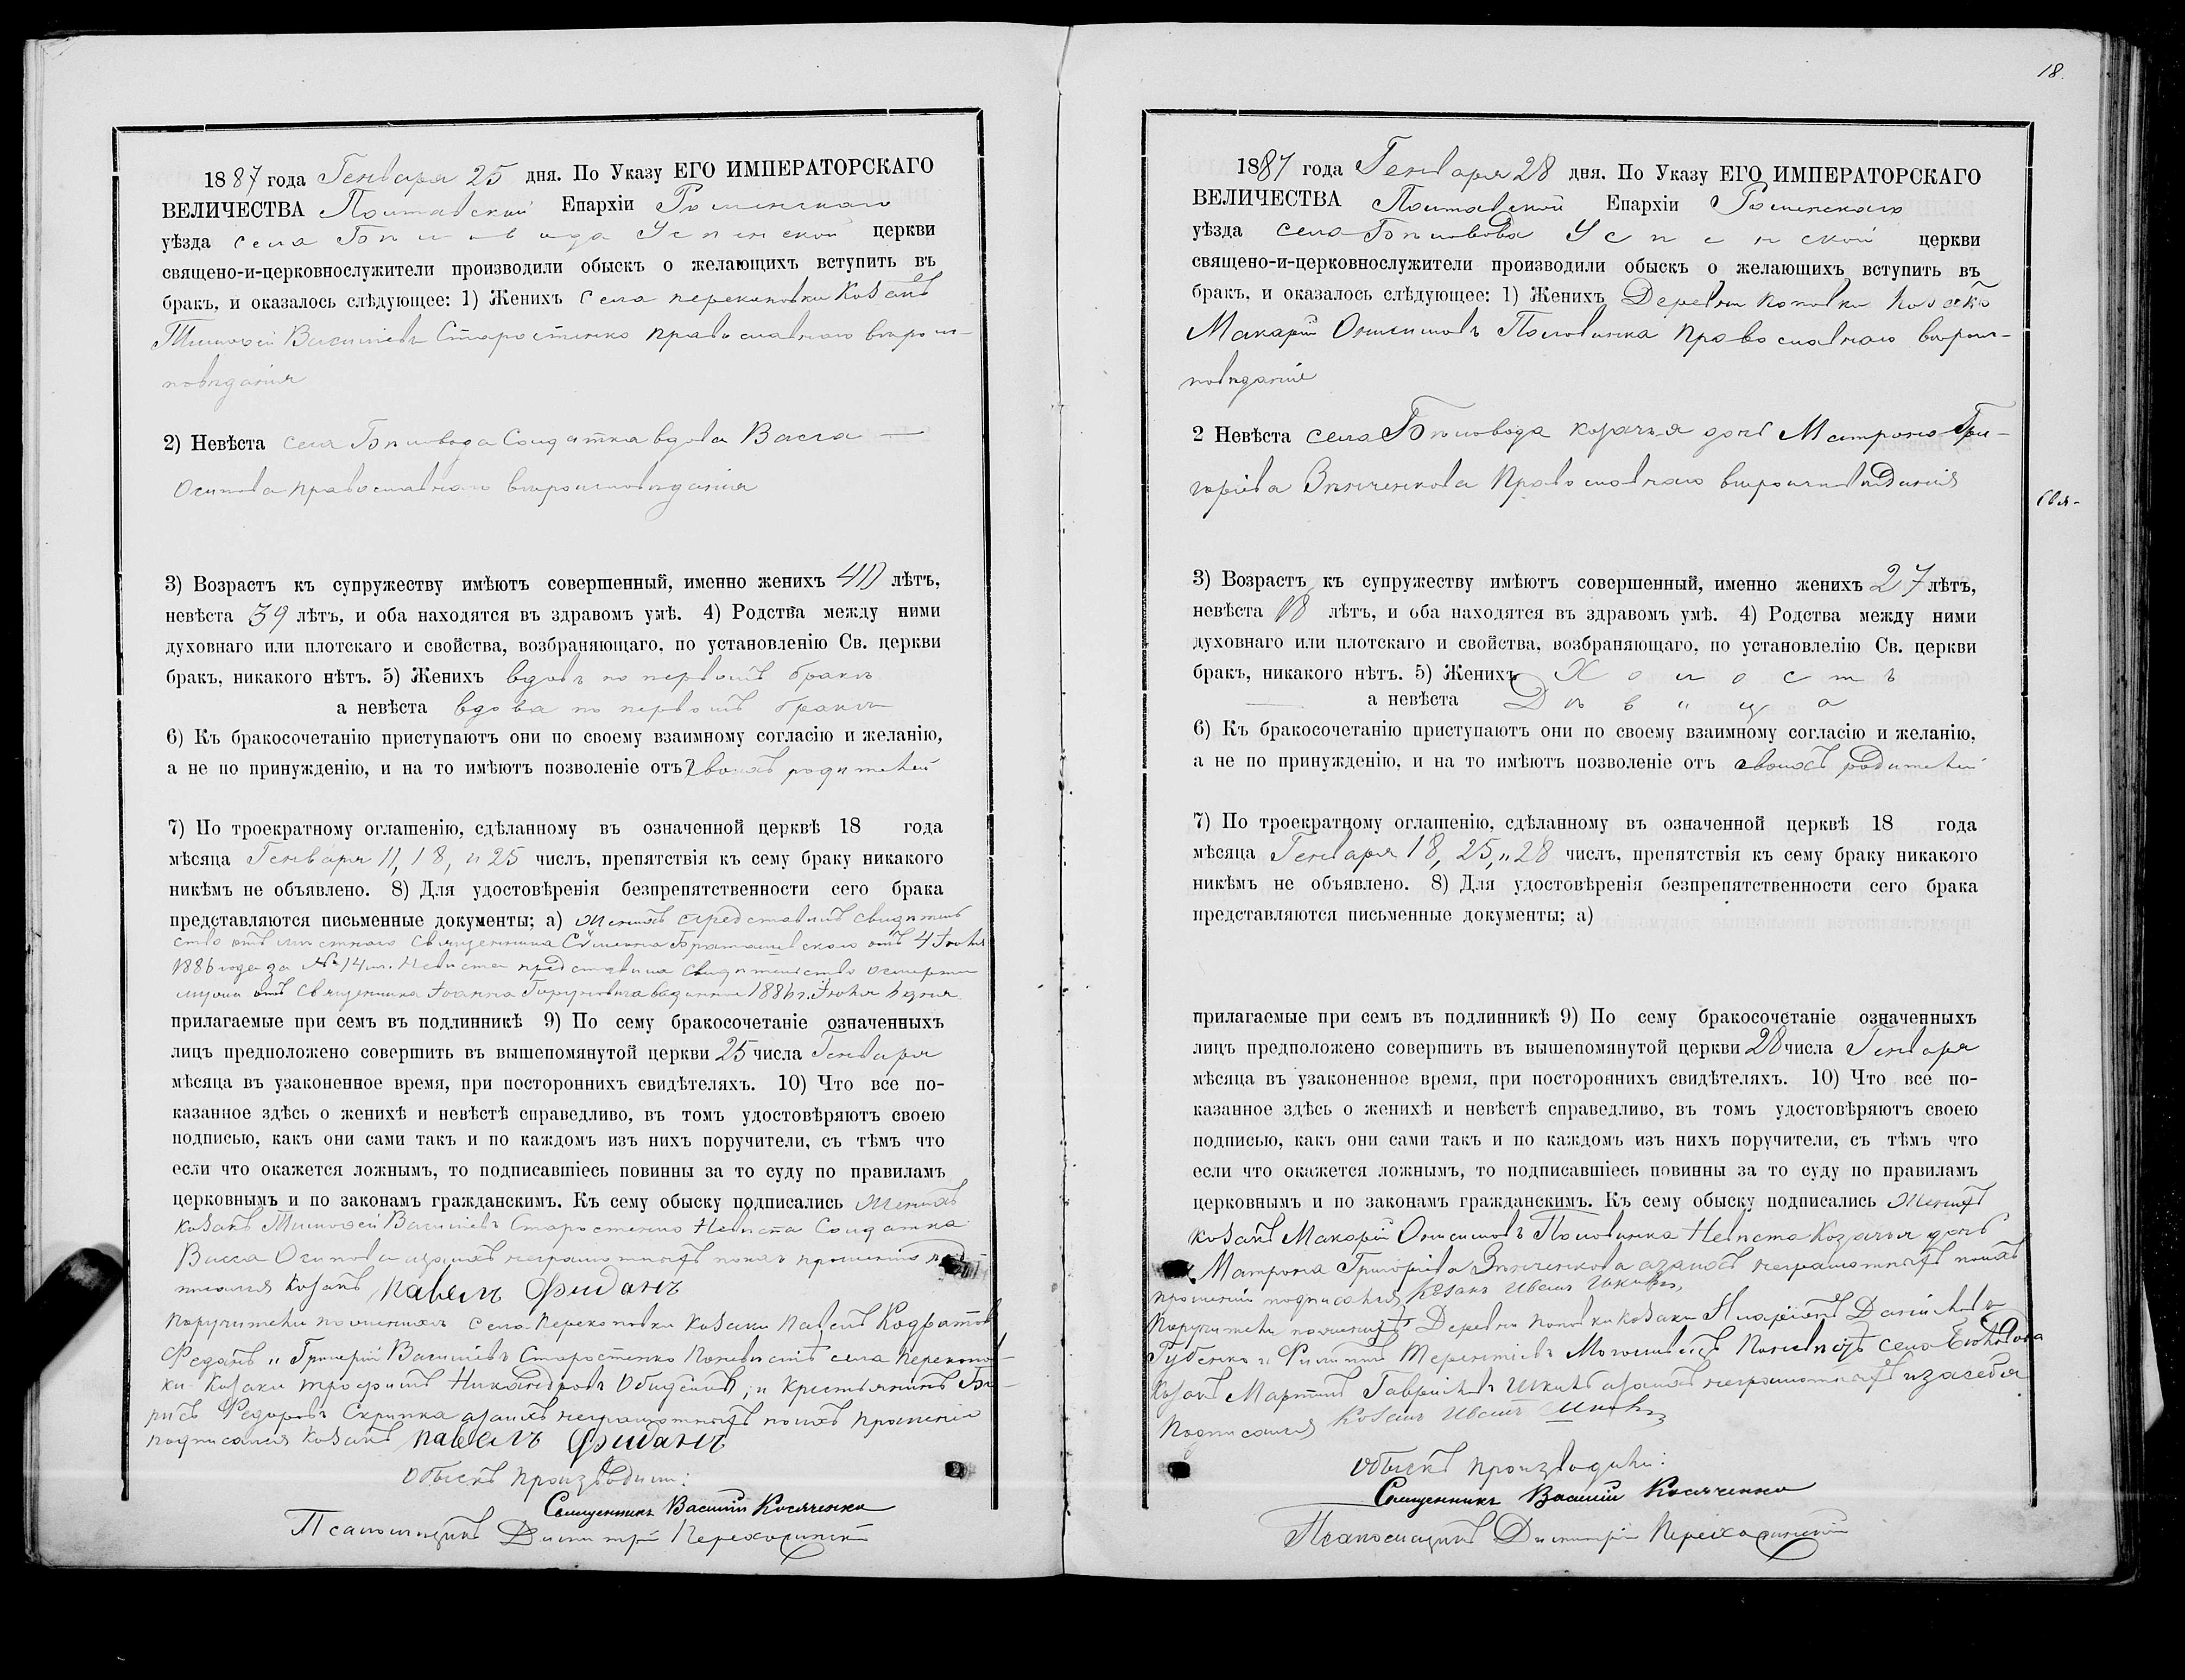 1887 года Генваря 25 дня. По Указу ЕГО ИМПЕРАТОРСКАГО
ВЕЛИЧЕСТВА Полтавской Епархіи Роменскаго
уѣзда села Бѣловода Успенской церкви
священо-и-церковнослужители производили обыскъ о желающихъ вступить въ
бракъ, и оказалось слѣдующее: 1) Женихъ села Перекоповки Козакъ
Тимофей Василіевъ Старостенко православнаго вѣроис-
повѣданія
2) Невѣста села Бѣловода Солдатка вдова Васса —
Осипова православнаго вѣроисповѣданія
3) Возрастъ къ супружеству имѣютъ совершенный, именно женихъ 40 лѣтъ,
невѣста 39 лѣтъ, и оба находятся въ здравомъ умѣ. 4) Родства между ними
духовнаго или плотскаго и свойства, возбраняющаго, по установленію Св. церкви
бракъ, никакого нѣтъ. 5) Женихъ вдовъ по первомъ бракѣ
а невѣста вдова по первомъ бракѣ
6) Къ бракосочетанію приступаютъ они по своему взаимному согласію и желанію,
а не по принужденію, и на то имѣютъ позволеніе отъ своихъ родителей
7) По троекратному оглашенію, сдѣланному въ означенной церквѣ 18 года
мѣсяца Генваря 11, 18, и 25 числъ, препятствія къ сему браку никакого
никѣмъ не объявлено. 8) Для удостовѣренія безпрепятственности сего брака
представляются письменные документы; а) Женихъ представилъ свидѣтель
ство отъ мѣстнаго священника отъ 4
1886 года за № 14м. Невѣста представила свидѣтельство о смерти
мужа отъ священника Іоанна 1886 г.
прилагаемые при семъ въ подлинникѣ 9) По сему бракосочетаніе означенныхъ
лицъ предположено совершить въ вышепомянутой церкви 25 числа Генваря
мѣсяца въ узаконенное время, при постороннихъ свидѣтеляхъ. 10) Что все по-
казанное здѣсь о женихѣ и невѣстѣ справедливо, въ томъ удостовѣряютъ своею
подписью, какъ они сами такъ и по каждомъ изъ нихъ поручители, съ тѣмъ что
если что окажется ложнымъ, то подписавшіесь повинны за то суду по правиламъ
церковнымъ и по законамъ гражданскимъ. Къ сему обыску подписались Женихъ
козакъ Тимофей Василіевъ Старостенко Невѣста Солдатка
Васса Осипова а за ихъ неграмотныхъ по ихъ прошенію под
писался Козакъ Павелъ
Поручители по женихѣ села Перекоповки козаки Павелъ
и Григорій Василіевъ Старостенко По невѣстѣ села Перекопов-
ки Козаки Трофимъ Никандровъ и крестьянинъ Бо-
рисъ Федоровъ Скрипка а за ихъ неграмотныхъ по ихъ прошенію
подписался Козакъ Павелъ
Обыскъ производили:
Священникъ Василій Косяченко
Псаломщикъ Димитрій
18.
1887 года Генваря 28 дня. По Указу ЕГО ИМПЕРАТОРСКАГО
ВЕЛИЧЕСТВА Полтавской Епархіи Роменскаго
уѣзда села Бѣловода Успенской церкви
священо-и-церковнослужители производили обыскъ о желающихъ вступить въ
бракъ, и оказалось слѣдующее: 1) Женихъ Деревни Поповки
Макарій Онисимовъ Половинка Православнаго вѣроис-
повѣданія
2 Невѣста села Бѣловода козачья дочь Матрона Гри-
горіева Зѣнченкова Православнаго вѣроисповѣданія
Свя-
3) Возрастъ къ супружеству имѣютъ совершенный, именно женихъ 27 лѣтъ,
невѣста 18 лѣтъ, и оба находятся въ здравомъ умѣ. 4) Родства между ними
духовнаго или плотскаго и свойства, возбраняющаго, по установлелію Св. церкви
бракъ, никакого нѣтъ. 5) Женихъ Холостъ
а невѣста Дѣвица
6) Къ бракосочетанію приступаютъ они по своему взаимному согласію и желанію,
а не по принужденію, и на то имѣютъ позволеніе отъ своихъ родителей
7) По троекратному оглашенію, сдѣланному въ означенной церквѣ 18 года
мѣсяца Генваря 18, 25, и 28 числъ, препятствія къ сему браку никакого
никѣмъ не объявлено. 8) Для удостовѣренія безпрепятственности сего брака
представляются письменные документы; а)
прилагаемые при семъ въ подлинникѣ 9) По сему бракосочетаніе означенныхъ
лицъ предположено совершить въ вышепомянутой церкви 28 числа Генваря
мѣсяца въ узаконенное время, при постороннихъ свидѣтеляхъ. 10) Что все по-
казанное здѣсь о женихѣ и невѣстѣ справедливо, въ томъ удостовѣряютъ своею
подписью, какъ они сами такъ и по каждомъ изъ нихъ поручители, съ тѣмъ что
если что окажется ложнымъ, то подписавшіесь повинны за то суду по правиламъ
церковнымъ и по законамъ гражданскимъ. Къ сему обыску подписались Женихъ
козакъ Макарій Онисимовъ Половинка Невѣста Козачья дочь
Матрона Григоріева Зѣнченкова а за ихъ неграмотныхъ по ихъ
прошенію подписался Козакъ Иванъ
Поручители по женихѣ Деревни Поповки козаки
Губенко и Филиппъ Терентіевъ По невѣстѣ села Бѣловода
Козакъ Мартинъ Гавріилъ а за ихъ неграмотныхъ и за себя
Подписался Козакъ Иванъ
Обыскъ производили:
Священникъ Василій Косяченко
Псаломщикъ Димитрій